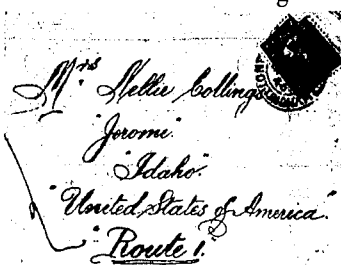 Mrs Nellie Collings
"Jerome"
"Idaho"
"United States of America."
"Route 1."